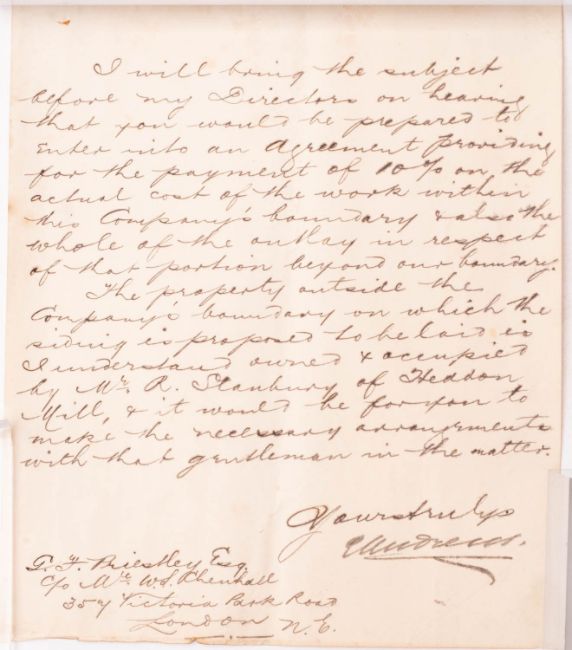 I will bring the subject
before my Directors on hearing
that you would be prepared to
Enter into an Agreement providing
for the payment of 10% on the
actual cost of the work within
this Company's boundary & also the
whole of the outlay in respect
of that portion beyond our boundary.
The property outside the
Company's boundary on which the
siding is proposed to be laid is
I understand owned & occupied
by Mr. R. Stanbury of Heddon
Mill, & it would be for you to
make the necessary arrangements
with that gentleman in the matter.
Yours truly
T. F. Priestley Esq
c/o Mr. W. S.
Victoria Park Road
London N.E.